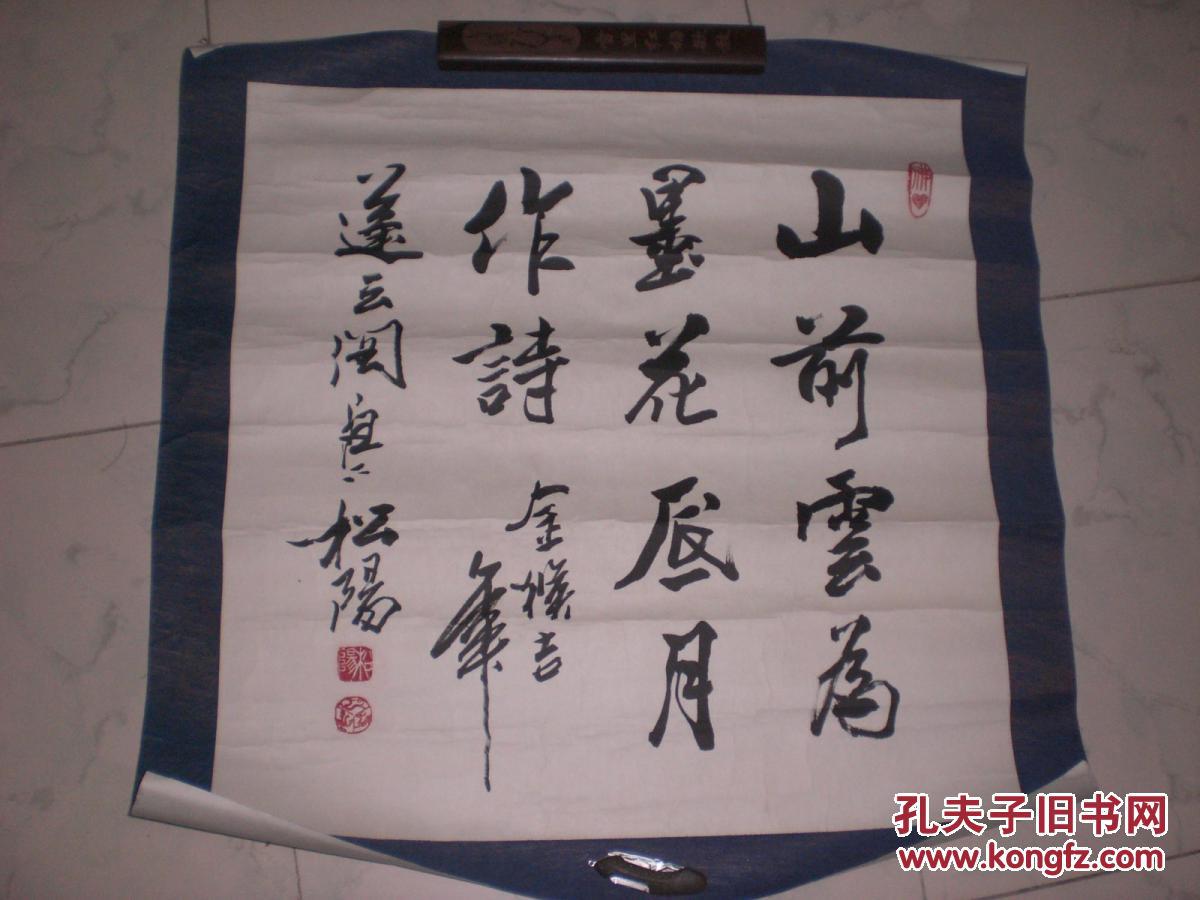 山前雲為
墨花底月
作詩
金猴吉
年
蓮云阁
松陽
孔夫子旧书网
www.kongfz.com